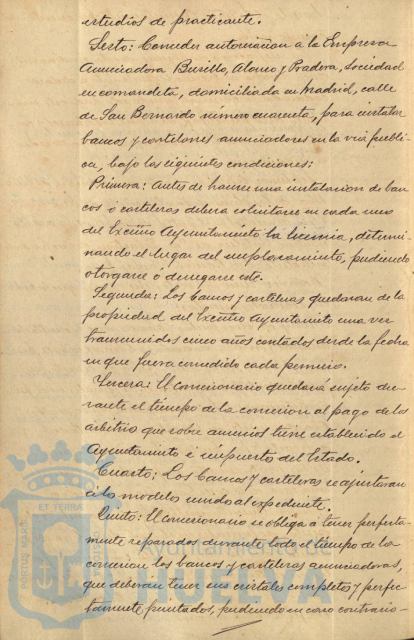 estudios de practicante.
Sesto: Conceder autorizacion á la Empresa
Anunciadora Busillo, Alonso y Pradera, Sociedad
en comandita, domiciliada en Madrid, calle
de San Bernardo número cuarenta, para instalar
bancos y cartelones anunciadores en la via publi-
ca, bajo las siguientes condiciones:
Primera: Antes de hacerse una instalacion de ban-
cos ó carteleras deberá solicitarse en cada uno
del Excmo Ayuntamiento la licencia, determi-
nando el lugar del emplazamiento, pudiendo
otorgarse ó denegarse este.
Segunda: Los bancos y carteleras quedaran de la
propiedad del Excmo Ayuntamto una vez
transcurridos cinco años contados desde la fecha
en que fuera concedido cada permiso.
Tercera: El concesionario quedará sujeto du-
rante el tiempo de la concesion al pago de los
arbitrios que sobre anuncios tiene establecido el
Ayuntamiento é impuestos del Estado.
Cuarto: Los bancos y carteleras se ajustaran
á los modelos unidos al expediente.
Quinto: El concesionario se obliga á tener perfecta-
mente reparados durante todo el tiempo de la
concesion los bancos y carteleras anunciadoras,
que deberán tener sus cristales completos y perfec-
tamente pintados, pudiendo en caso contrario-
Ayuntamiento de
HUELVA
ET TERRAE
PORTUS MARIS
CUSTODIA